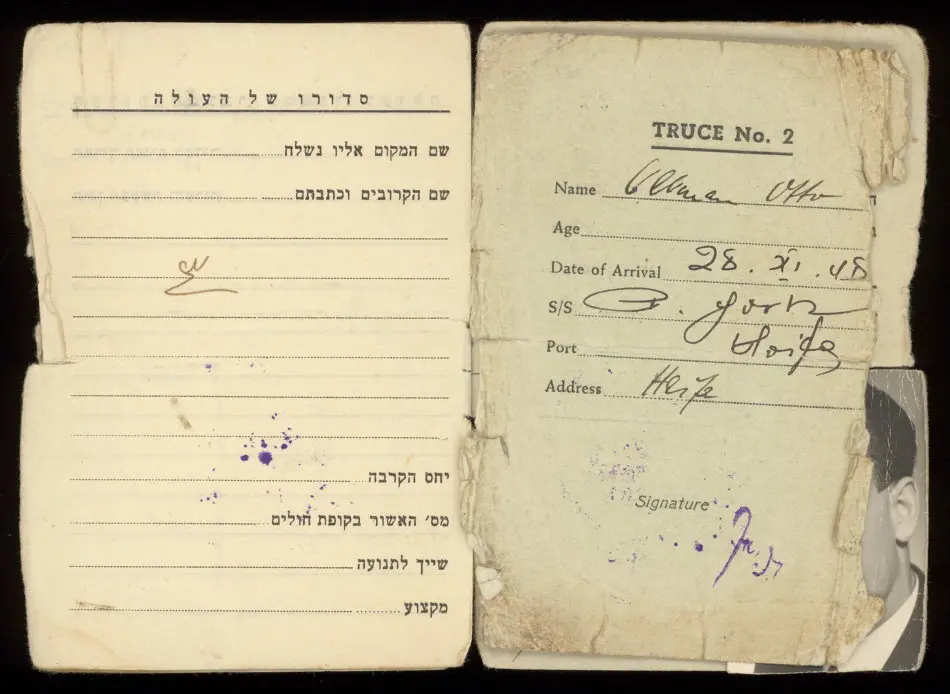 סדורו של העולה
שם המקום אליו נשלח
שם הקרובים וכתבתם
יחס הקרבה
מס׳ האשור בקופת חולים
שייך לתנועה
מקצוע
TRUCE No. 2
Name Otto
Age
Date of Arrival 28. XI. 48
S/S York
Port Haifa
Address Haifa
Signature